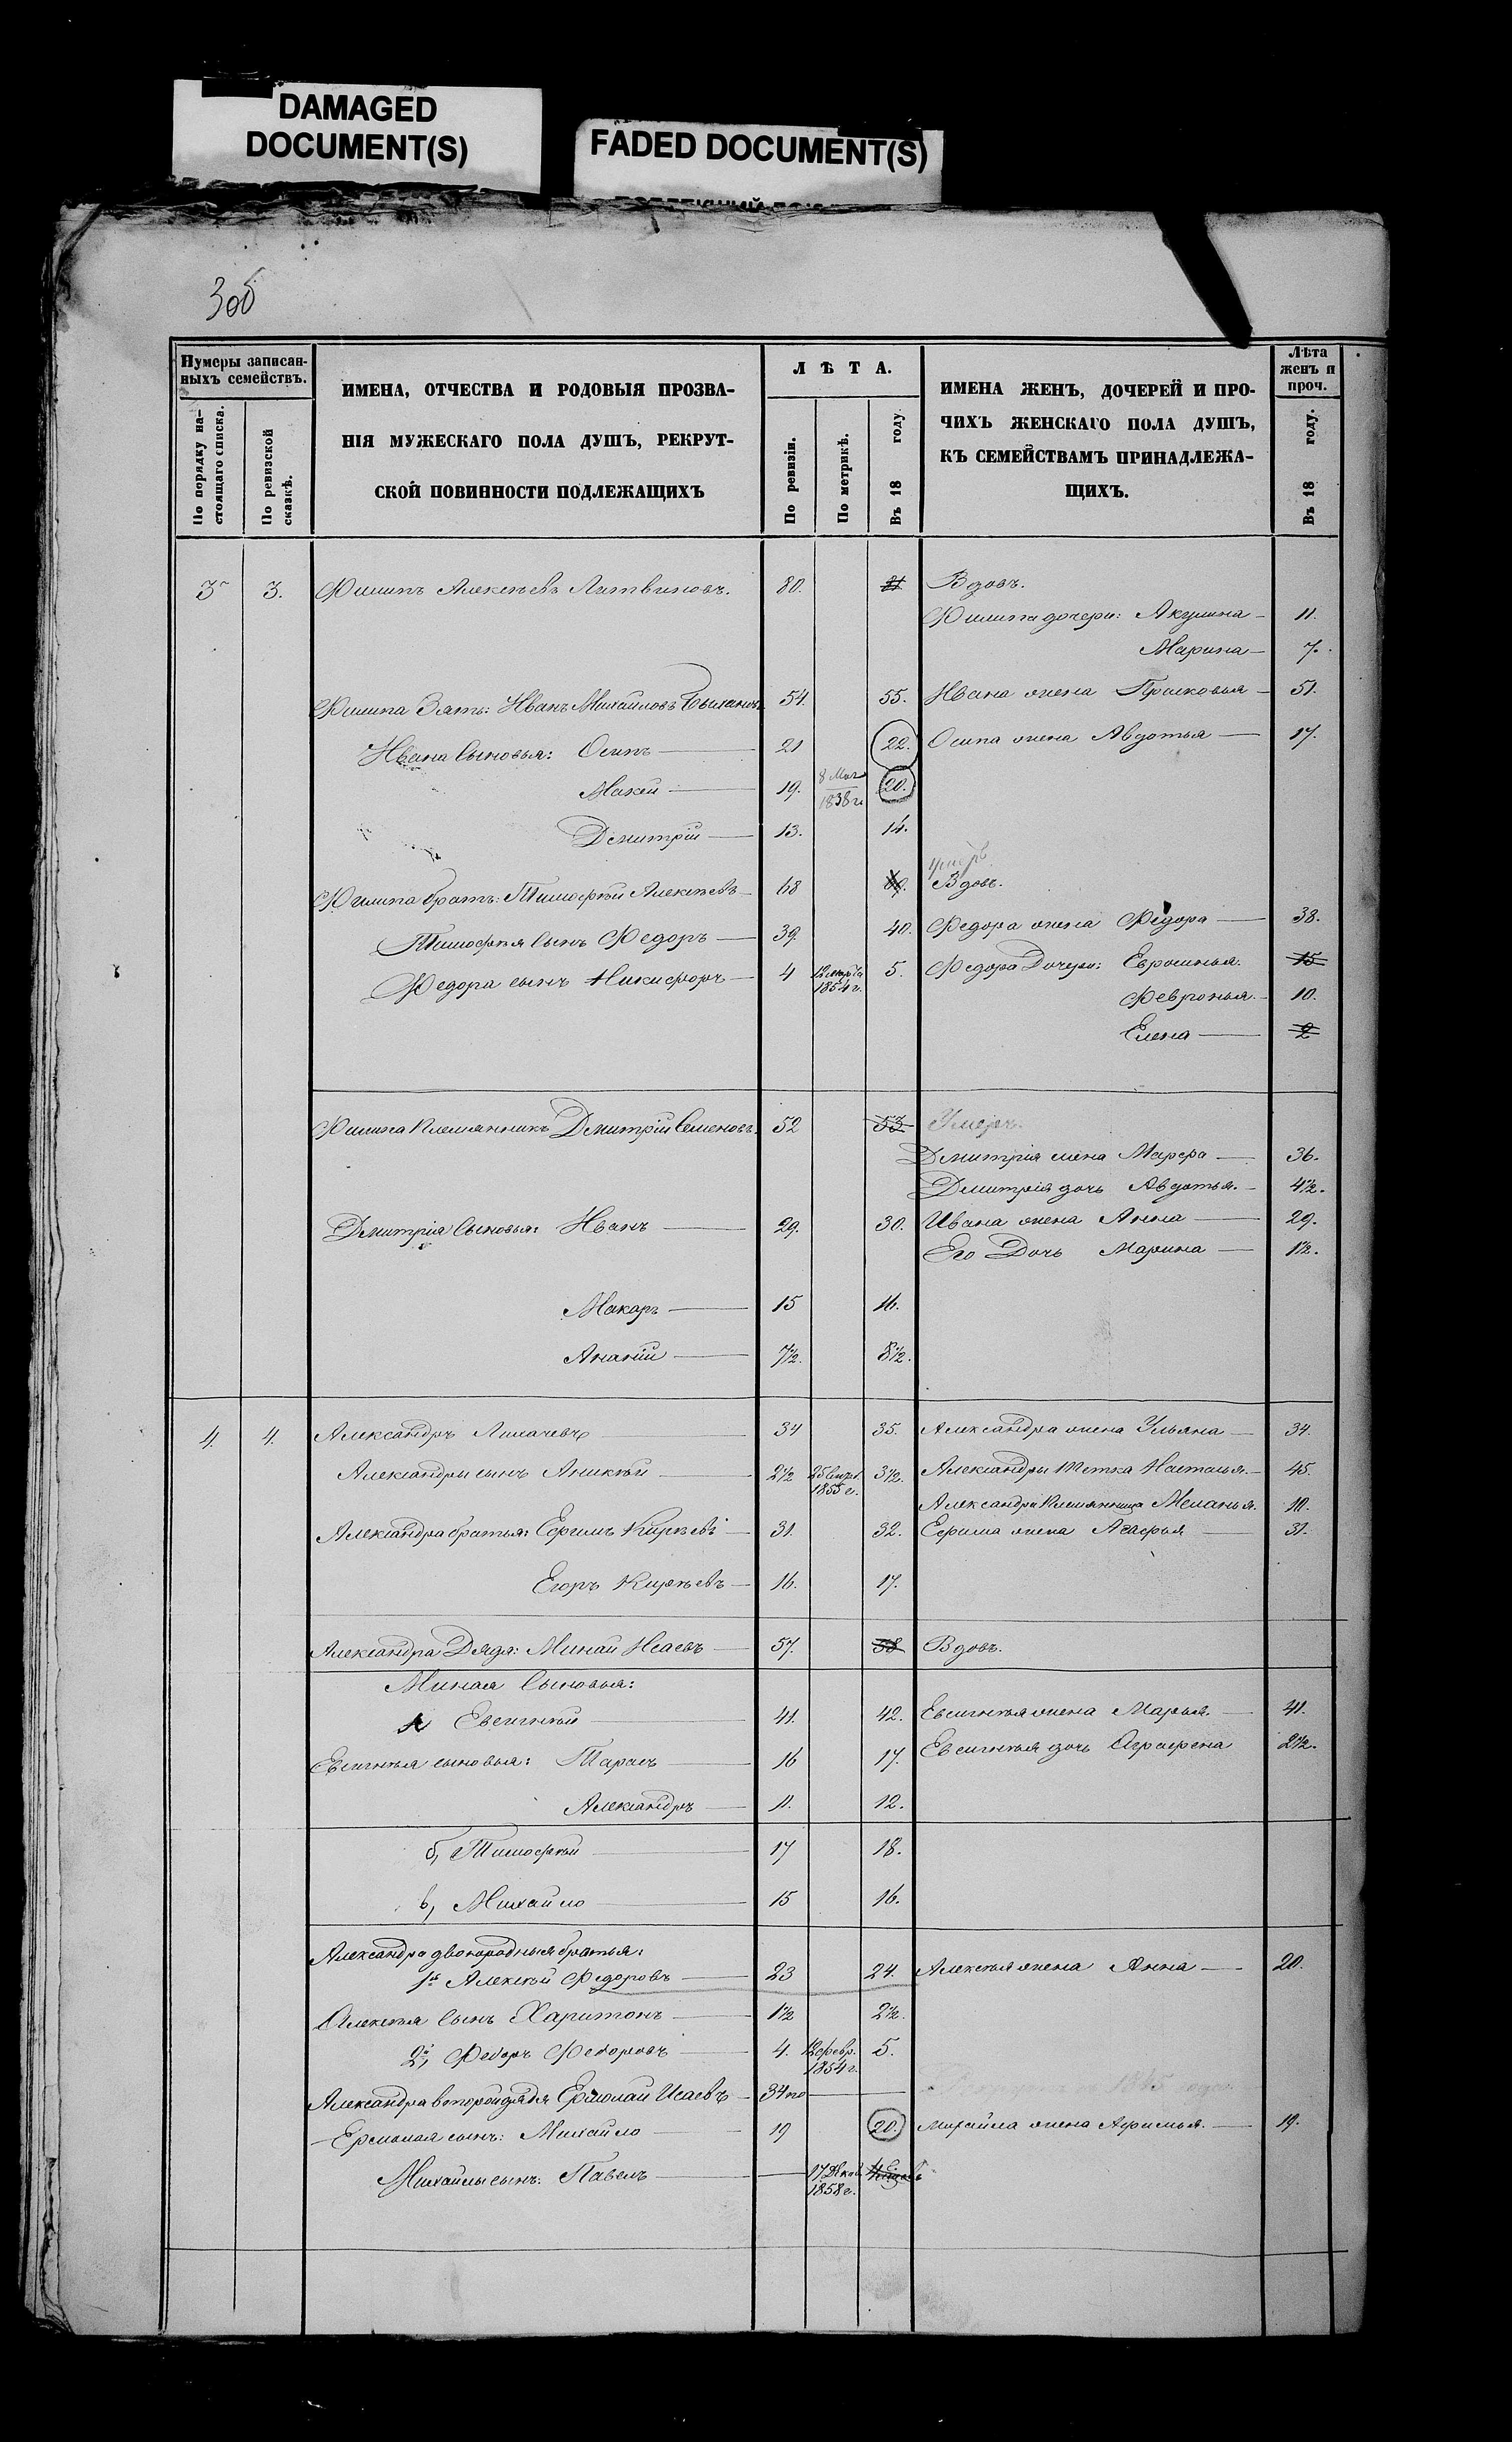 DAMAGED
DOCUMENT(S)
FADED DOCUMENT(S)
3об
Нумеры записан-
ныхъ семействъ.
По порядку на-
стоящаго списка.
По ревизской
сказкѣ.
ИМЕНА, ОТЧЕСТВА И РОДОВЫЯ ПРОЗВА-
НІЯ МУЖЕСКАГО ПОЛА ДУШЪ, РЕКРУТ-
СКОЙ ПОВИННОСТИ ПОДЛЕЖАЩИХЪ
ЛѢТА.
По ревизіи.
По метрикѣ.
Въ 18 году
ИМЕНА ЖЕНЪ, ДОЧЕРЕЙ И ПРО-
ЧИХЪ ЖЕНСКАГО ПОЛА ДУШЪ,
КЪ СЕМЕЙСТВАМЪ ПРИНАДЛЕЖА-
ЩИХЪ.
Лѣта
женъ и
проч.
Въ 18 году.
3 3. Филипъ Алексѣевъ Литвиновъ. 80. 81 Вдовъ.
Филипа дочери: Акулина 11.
Марина 7.
Филипа Зять: Иванъ Михайловъ 54. 55. Ивана жена Прасковья 51.
Ивана Сыновья: Осипъ 21 22. Осипа жена Авдотья 17.
Макей 19. 8 1838 г. 20.
Дмитрій 13. 14.
умеръ
Филипа братъ: Тимофѣй Алексѣевъ 68 Вдовъ.
Тимофѣя Сынъ Федоръ 39. 40. Федора жена Федора 38.
Федора сынъ Никифоръ 4 1854 г. 5. Федора Дочери: Евросинья. 15
Февронья. 10.
Елена 2
Филипа Племянникъ Дмитрій Семеновъ. 52 53. Умеръ.
Дмитрія жена Марфа 36.
Дмитрія дочь Авдотья. 4½.
Дмитрія Сыновья: Иванъ 29. 30. Ивана жена Анна 29.
Его Дочь Марина 1½.
Макаръ 15 16.
Ананій 7½. 8½.
4. 4. Александръ Лихачевъ 34 35. Александра жена Ульяна 34.
Александры сынъ Аникѣй 2½ 25 1855 г. 3½. Александры Тетка Наталья. 45.
Александра Племянница Меланья. 10.
Александра братья: Ефимъ Кирѣевъ 31. 32. Ефима жена Агафья 31.
Егоръ Кирѣевъ 16. 17.
Александра Дядя: Минай Исаевъ 57. 58 Вдовъ.
Миная Сыновья:
А Евсигнѣй 41. 42. Евсигнѣя жена Марья. 41.
Евсигнѣя сыновья: Тарасъ 16 17. Евсигнѣя дочь Аграфена 2½.
Александръ 11. 12.
б, Тимофѣй 17 18.
в, Михайло 15 16.
Александра двоюродныя братья:
1й Алексѣй Федоровъ 23 24. Алексѣя жена Анна 20.
Алексѣя Сынъ Харитонъ 1½ 2½.
2й, Федоръ Федоровъ 4. 12 февр. 1854 г. 5.
Александра второй дядя Ермолай Исаевъ 34 по
Ермолая сынъ: Михайло 19 20. Михайла жена Афимья. 19.
Михайлы сынъ: Павелъ 17 1858 г.